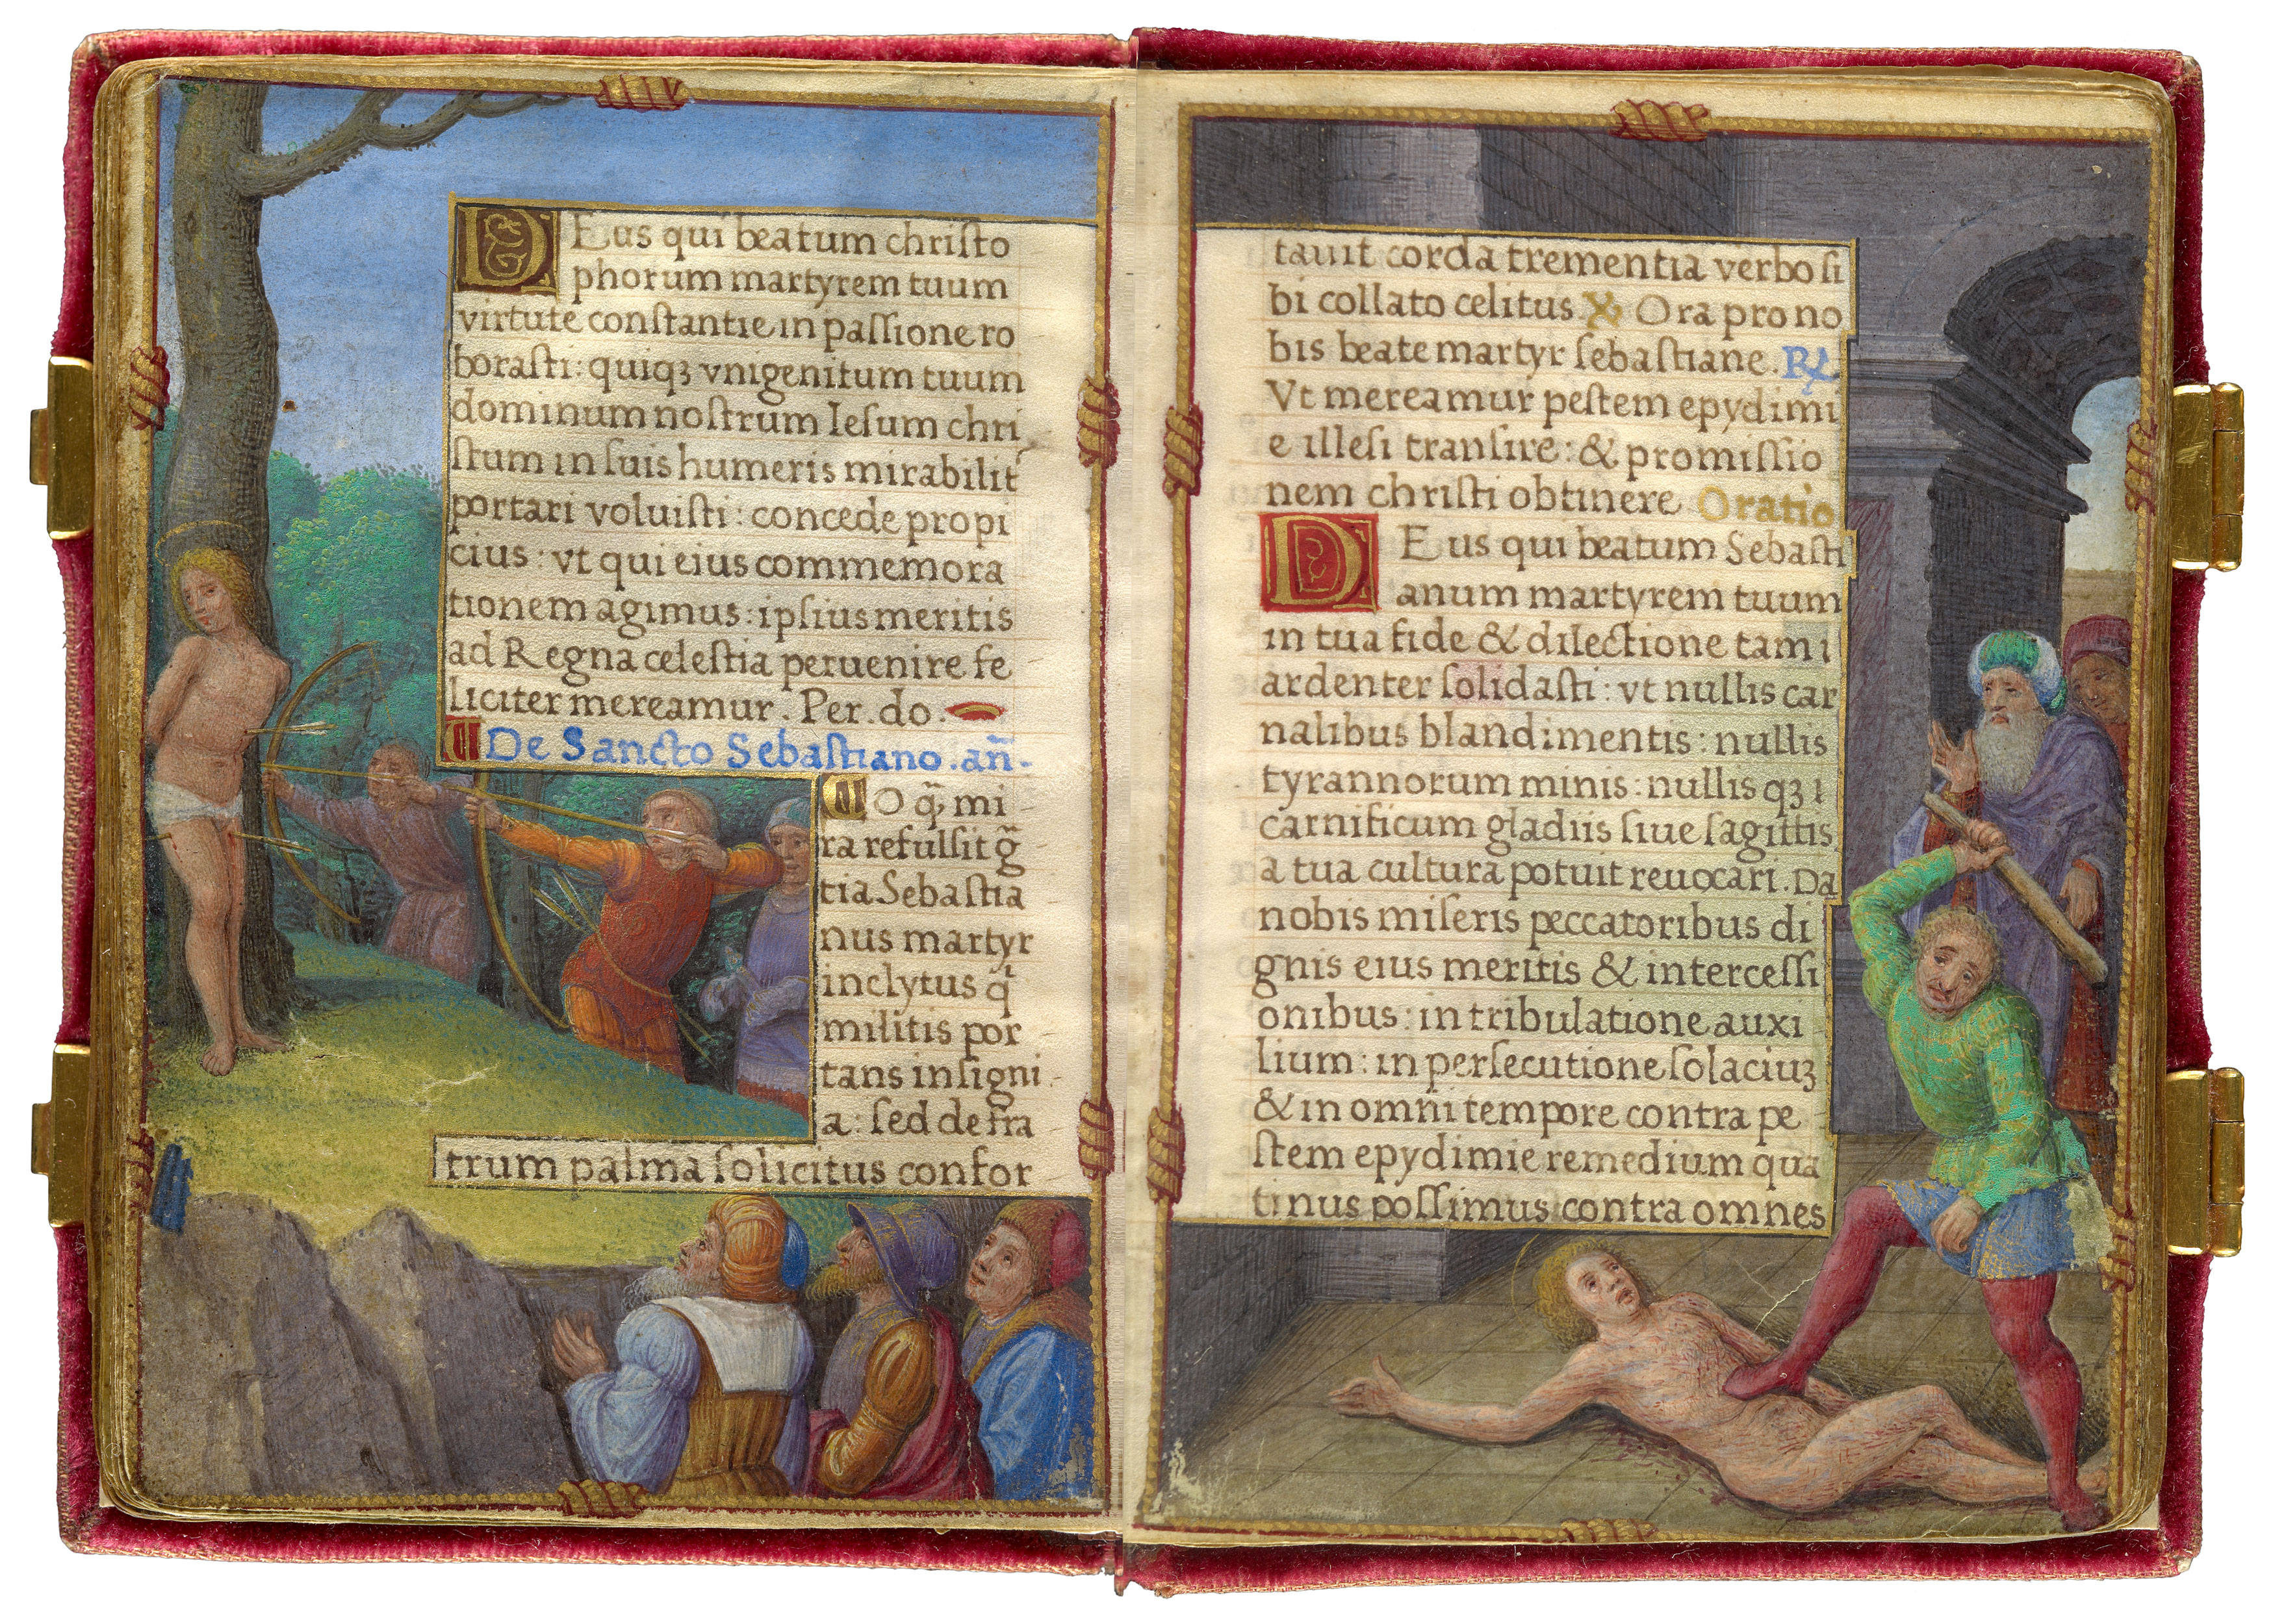 DEus qui beatum christo
phorum martyrem tuum
virtute constantie in passione ro
borasti: quiqꝫ vnigenitum tuum
dominum nostrum Iesum chri
stum in suis humeris mirabilit᾽
portari voluisti: concede propi
cius: vt qui eius commemora
tionem agimus: ipsius meritis
ad Regna celestia peruenire fe
liciter mereamur. Per. do.
De Sancto Sebastiano. añ.
O q̃ mi
ra refulsit g̃
tia Sebastia
nus martyr
inclytus qͥ
militis por
tans insigni
a: sed de fra
trum palma solicitus confor
tauit corda trementia verbo si
bi collato celitus ℣ Ora pro no
bis beate martyr sebastiane. ℟.
Vt mereamur pestem epydimi
e illesi transire: & promissio
nem christi obtinere Oratio
DEus qui beatum Sebasti
anum martyrem tuum
in tua fide & dilectione tam
ardenter solidasti: vt nullis car
nalibus blandimentis: nullis
tyrannorum minis: nullis qꝫ
carnificum gladiis siue sagittis
a tua cultura potuit reuocari. Da
nobis miseris peccatoribus di
gnis eius meritis & intercessi
onibus: in tribulatione auxi
lium: in persecutione solaciuꝫ
& in omni tempore contra pe
stem epydimie remedium qua
tinus possimus contra omnes